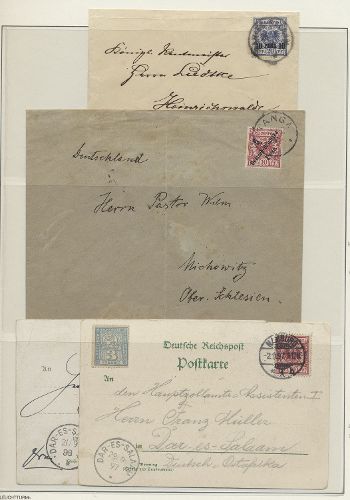 Königl. Rentmeister
Herrn Luedtke
Heinrichswalde
TANGA
Deutschland
Herrn Pastor Wilm
Michowitz
Ober-Schlesien
An
DAR-ES-SALAAM
98
Deutsche Reichspost
Postkarte
3
An
HAMBURG
den Hauptzollamts-Assistenten I
Herrn Franz Müller
Dar-es-Salaam
Deutsch-Ostafrika
DAR-ES-SALAAM
97
LEUCHTTURM